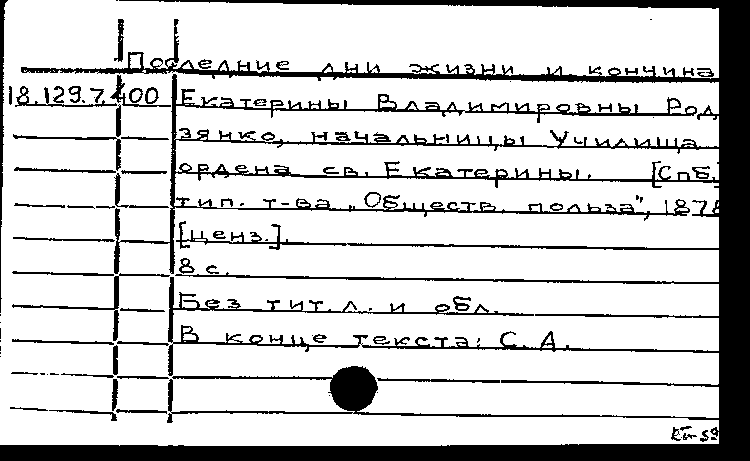 Последние дни жизни и кончина
18.129.7.400 Екатерины Владимировны Род
зянко, начальницы Училища
ордена св. Екатерины. [Спб.]
тип. т-ва „Обществ. польза", 1878
[ценз.].
8 с.
Без тит. л. и обл.
В конце текста: С. А.